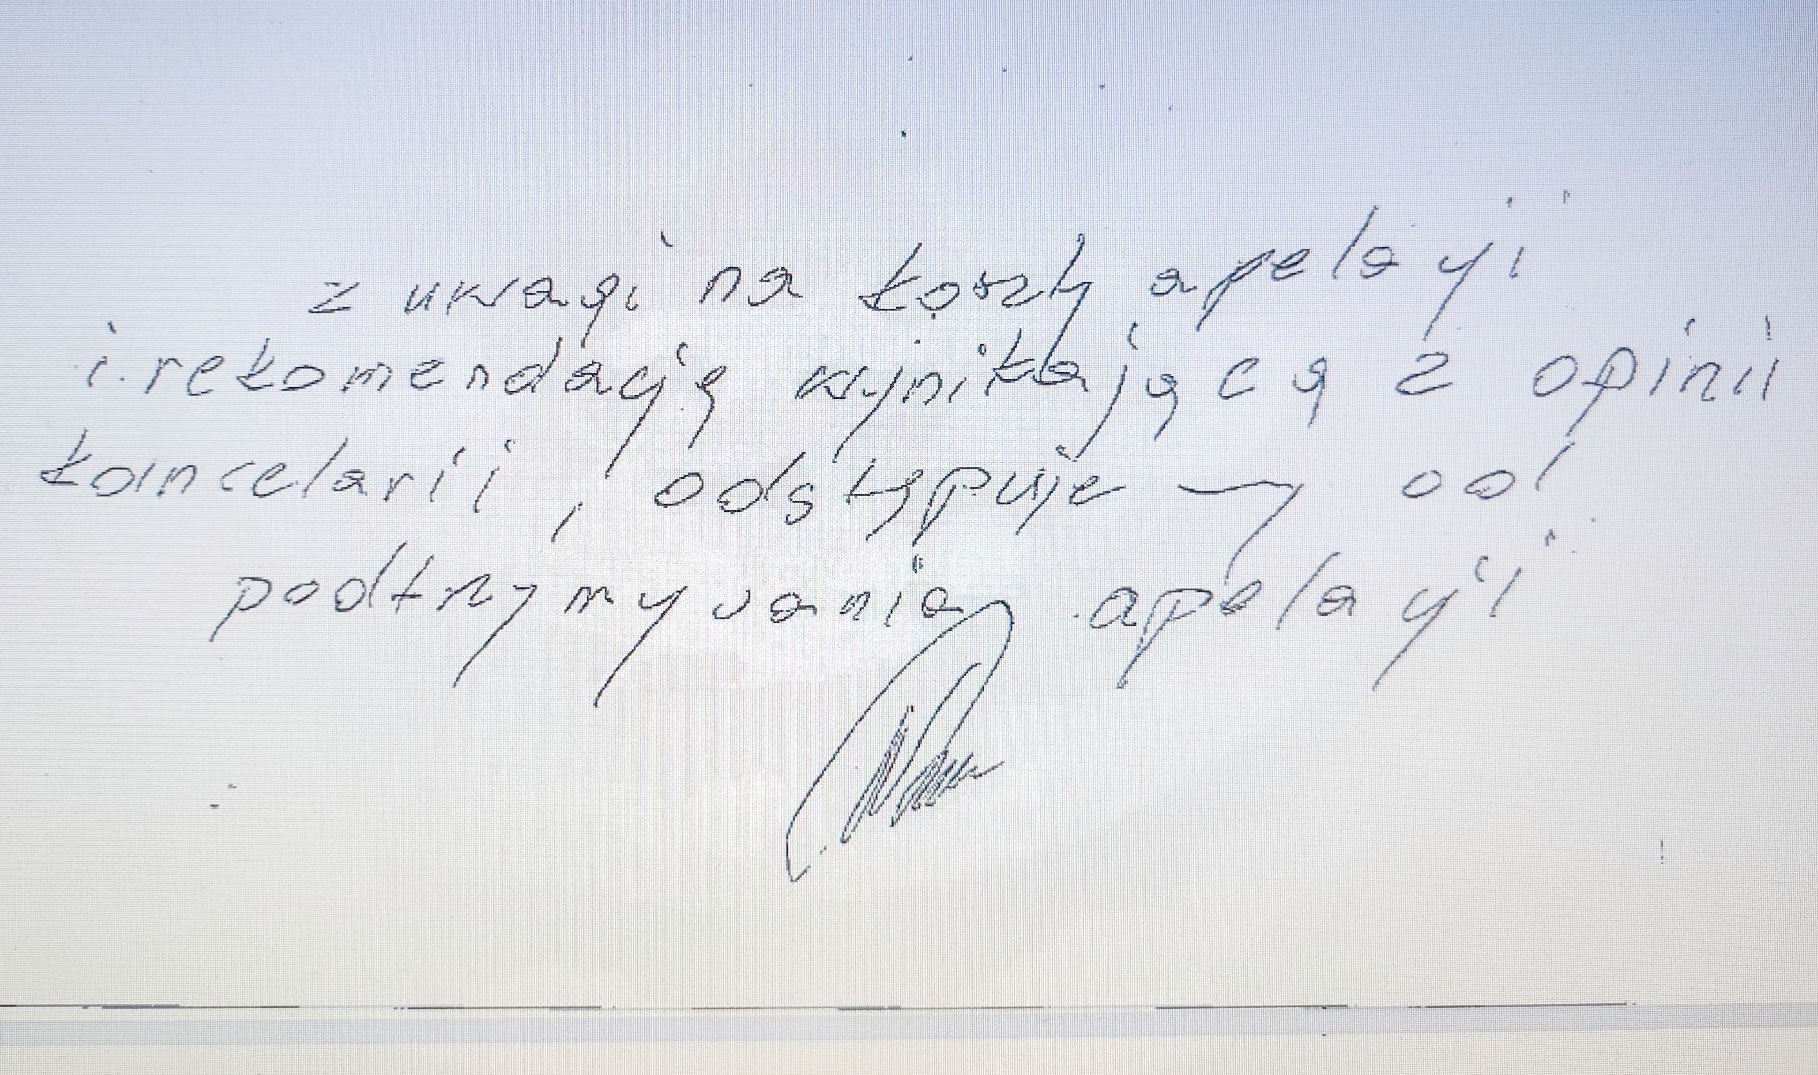 z uwagi na koszty apelacji
i rekomendację wynikającą z opinii
kancelarii, odstępujemy od
podtrzymywania apelacji